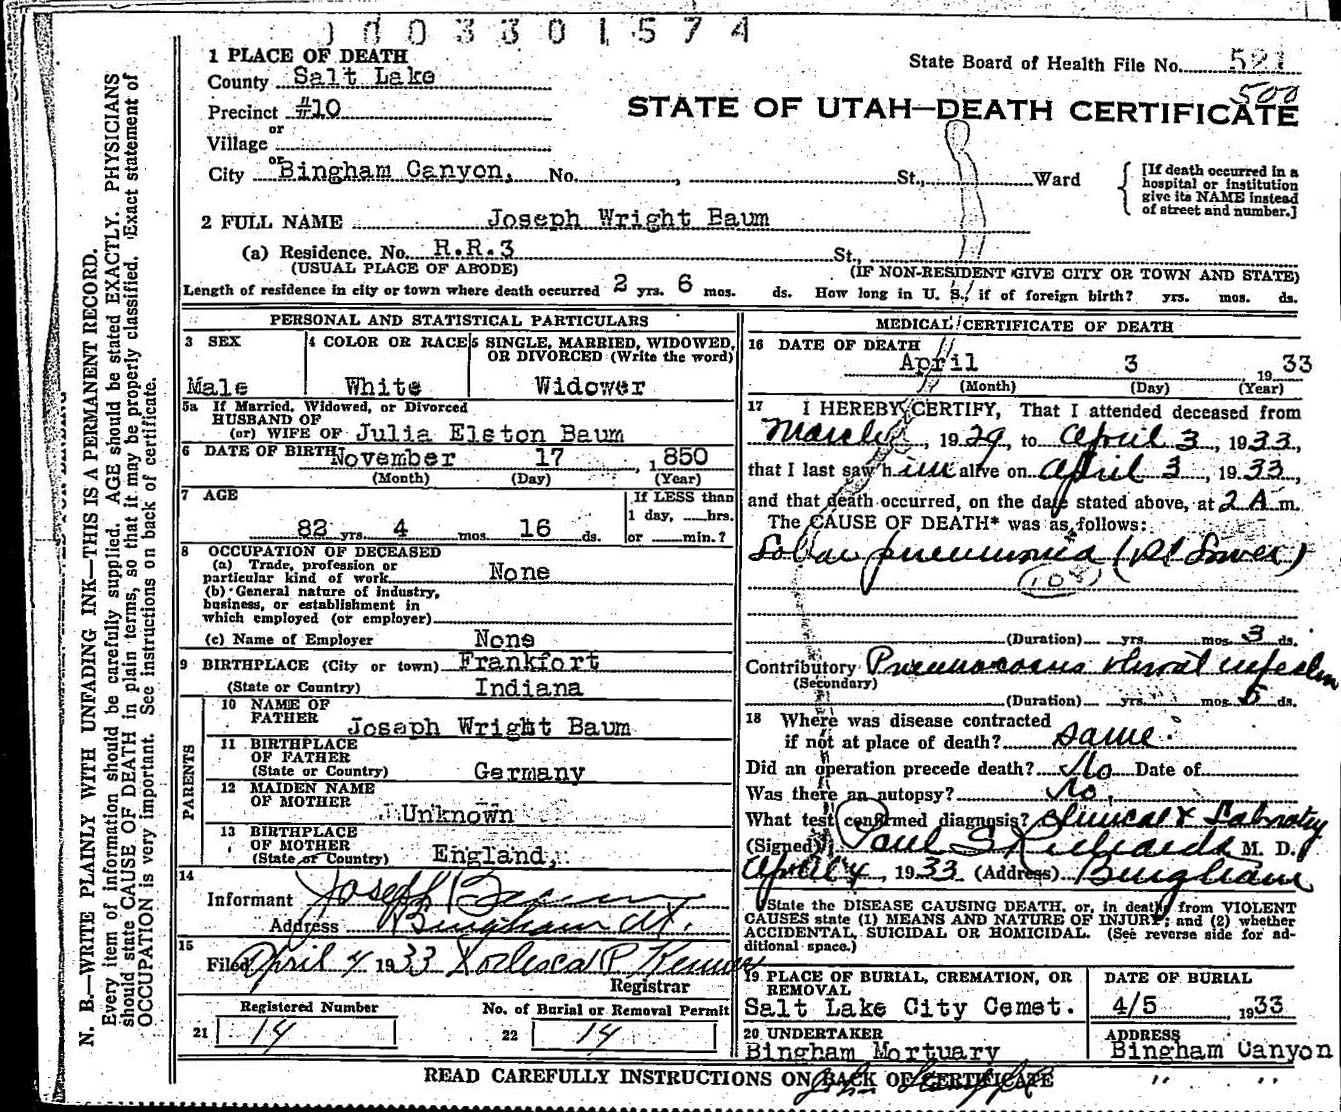 0003301574
1 PLACE OF DEATH
State Board of Health File No. 521
500
County Salt Lake
Precinct #10
STATE OF UTAH—DEATH CERTIFICATE
or
Village
or
City Bingham Canyon, No. , St., Ward
[If death occurred in a
hospital or institution
give its NAME instead
of street and number.]
2 FULL NAME Joseph Wright Baum
(a) Residence. No. R.R.3 St.,
(USUAL PLACE OF ABODE) (IF NON-RESIDENT GIVE CITY OR TOWN AND STATE)
Length of residence in city or town where death occurred 2 yrs. 6 mos. ds. How long in U. S., if of foreign birth? yrs. mos. ds.
PERSONAL AND STATISTICAL PARTICULARS
3 SEX
Male
4 COLOR OR RACE
White
5 SINGLE, MARRIED, WIDOWED,
OR DIVORCED (Write the word)
Widower
5a If Married, Widowed, or Divorced
HUSBAND OF
(or) WIFE OF Julia Elston Baum
6 DATE OF BIRTH November 17, 1850
(Month) (Day) (Year)
7 AGE
82 yrs. 4 mos. 16 ds.
If LESS than
1 day, hrs.
or min.?
8 OCCUPATION OF DECEASED
(a) Trade, profession or
particular kind of work None
(b) General nature of industry,
business, or establishment in
which employed (or employer)
(c) Name of Employer None
9 BIRTHPLACE (City or town) Frankfort
(State or Country) Indiana
PARENTS
10 NAME OF
FATHER Joseph Wright Baum
11 BIRTHPLACE
OF FATHER
(State or Country) Germany
12 MAIDEN NAME
OF MOTHER Unknown
13 BIRTHPLACE
OF MOTHER
(State or Country) England,
14
Informant Joseph Baum
Address Bingham Ut.
15
Filed April 4 1933
Registrar
Registered Number
21 14
No. of Burial or Removal Permit
22 14
MEDICAL CERTIFICATE OF DEATH
16 DATE OF DEATH
April 3 1933
(Month) (Day) (Year)
17 I HEREBY CERTIFY, That I attended deceased from
March, 1929, to April 3, 1933,
that I last saw him alive on April 3, 1933,
and that death occurred, on the date stated above, at 2 A.m.
The CAUSE OF DEATH* was as follows:
Lobar pneumonia (Rt Lower)
108
(Duration) yrs. mos. 3 ds.
Contributory Pneumococcus throat infection
(Secondary)
(Duration) yrs. mos. 5 ds.
18 Where was disease contracted
if not at place of death? same
Did an operation precede death? No Date of
Was there an autopsy? No.
What test confirmed diagnosis? Clinical & Laboratory
(Signed) Paul S Richards M. D.
April 4, 1933 (Address) Bingham
*State the DISEASE CAUSING DEATH, or, in death from VIOLENT
CAUSES state (1) MEANS AND NATURE OF INJURY; and (2) whether
ACCIDENTAL, SUICIDAL OR HOMICIDAL. (See reverse side for ad-
ditional space.)
19 PLACE OF BURIAL, CREMATION, OR
REMOVAL
Salt Lake City Cemet.
DATE OF BURIAL
4/5 1933
20 UNDERTAKER
Bingham Mortuary
ADDRESS
Bingham Canyon
" "
READ CAREFULLY INSTRUCTIONS ON BACK OF CERTIFICATE
N. B.—WRITE PLAINLY WITH UNFADING INK—THIS IS A PERMANENT RECORD.
Every item of information should be carefully supplied. AGE should be stated EXACTLY. PHYSICIANS
should state CAUSE OF DEATH in plain terms, so that it may be properly classified. Exact statement of
OCCUPATION is very important. See instructions on back of certificate.